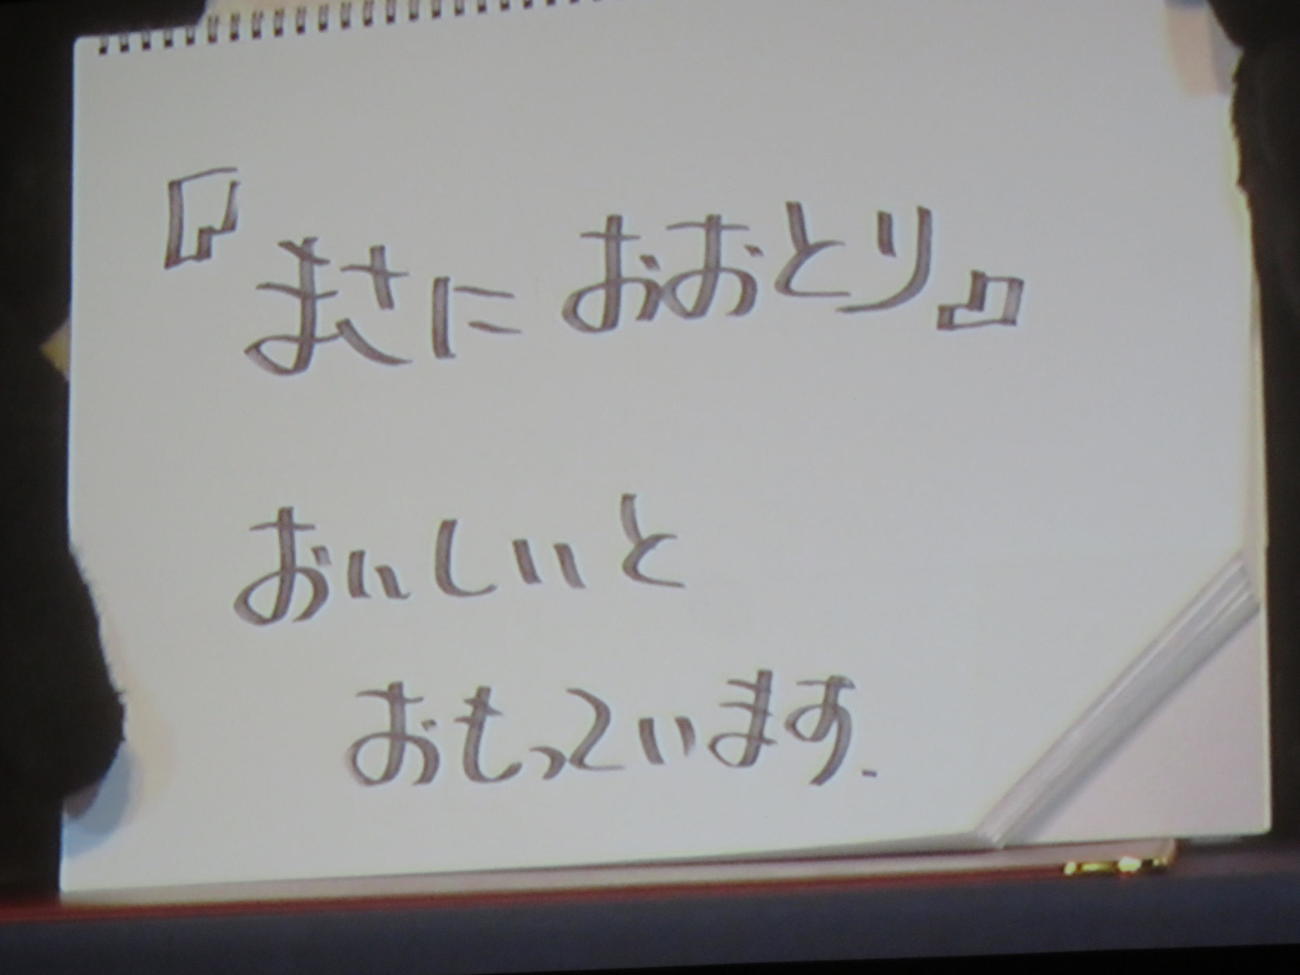 『まさに おおとり』
おいしいと
おもっています.